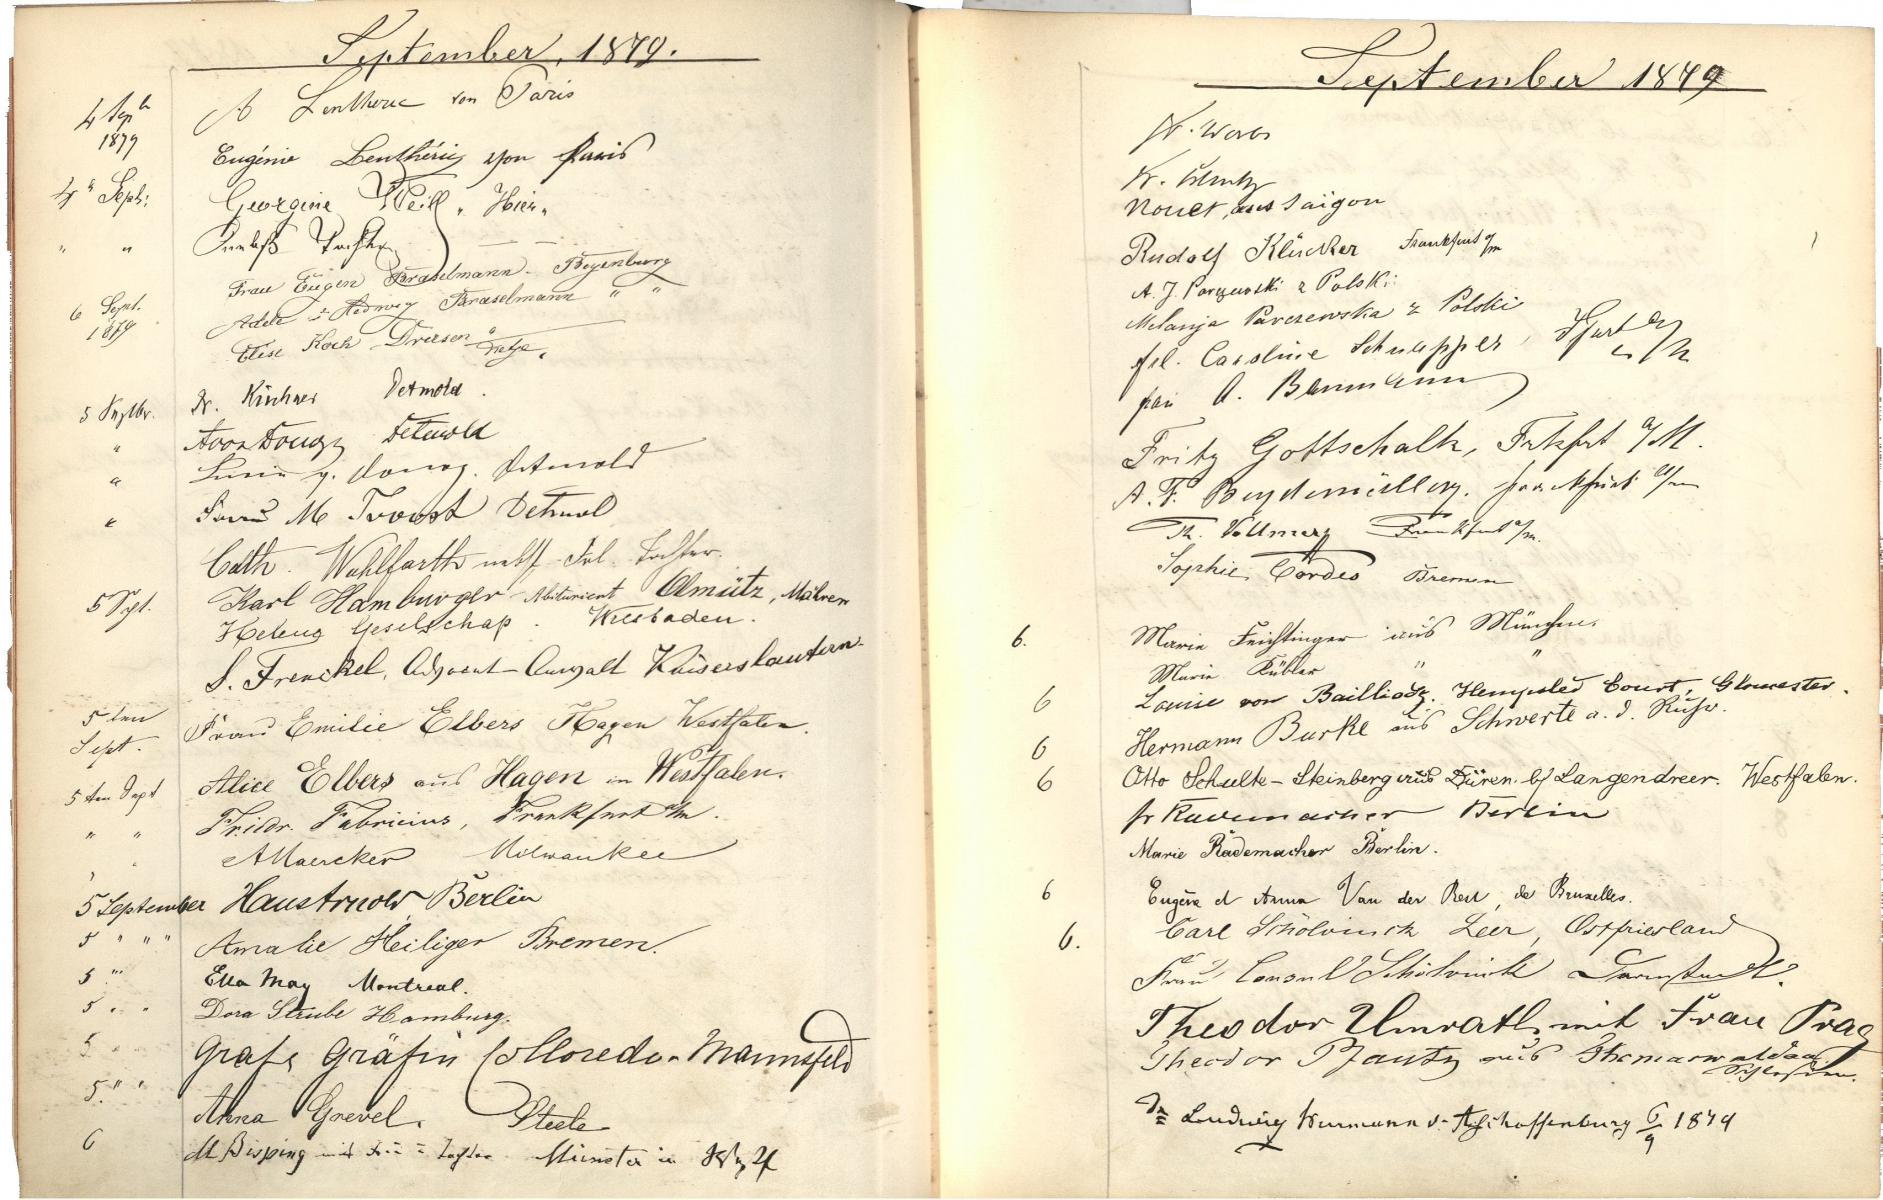 September, 1879.
4 Sept
1879
A Lentheric von Paris
Eugénie Lenthéric von Paris
4 Sept:
Georgine Weill „ Hier „
" "
nebst Tochter
Frau Eugen Braselmann - Beyenburg
6 Sept.
1879
Adele & Hedwig Braselmann " "
Elise Koch Driesen
Dr. Kirchner Detmold.
5 Septbr.
" Detmold
" v. Donop. Detmold
" Frau M Troost Detmold
Cath. Wohlfarth nebst Frl. Tochter.
5 Sept.
Karl Hamburger Abiturient Olmütz, Mähren
Helene Geselschap. Wiesbaden.
S. Frenckel, Advocat-Anwalt Kaiserslautern.
5ten
Sept.
Frau Emilie Elbers Hagen Westfalen.
5ten Sept
Alice Elbers aus Hagen in Westfalen.
" "
Friedr. Fabricius, Frankfurt a/m.
A Maercker Milwaukee
5 September Hans Arnold Berlin
5 " " "
Amalie Heiliger Bremen.
5 "
Ella May Montreal.
5 " "
Dora Strube Hamburg.
5 "
Graf & Gräfin Colloredo-Mannsfeld
5. " "
Anna Grevel. Steele
6
M Bisping mit Frau & Tochter Münster in Westf
September 1879
N. Worbs
Nouet, aus Saïgon
Rudolf Klücker Frankfurt a/m
A. J. Parczewski z Polski
Melanja Parczewska z Polski
frl. Caroline Schnapper, Ffurt a/M
frau A. Baumann
Fritz Gottschalk, Frkfrt a/M.
A. F. Frankfurt a/m
Th. Vollmer Frankfurt a/m.
Sophie Cordes Bremen
6.
Marie Feichtinger aus München.
Marie Kübler " "
6
Louise von Baillodz. Hempsted Court, Gloucester.
6
Hermann Burke aus Schwerte a. d. Ruhr.
6
Otto Schulte-Steinberg aus Düren b/ Langendreer. Westfalen.
fr Rademacher Berlin
Marie Rademacher Berlin.
6
Eugène et Anna Van der Rest, de Bruxelles.
6.
Carl Schölvinck Leer, Ostfriesland
Frau Consul Schölvinck Darmstadt.
Theodor Umrath mit Frau Prag
Theodor Pfautz aus Thomaswaldau
Schlesien.
Ludwig Wurmann v. Aschaffenburg 6/9 1879